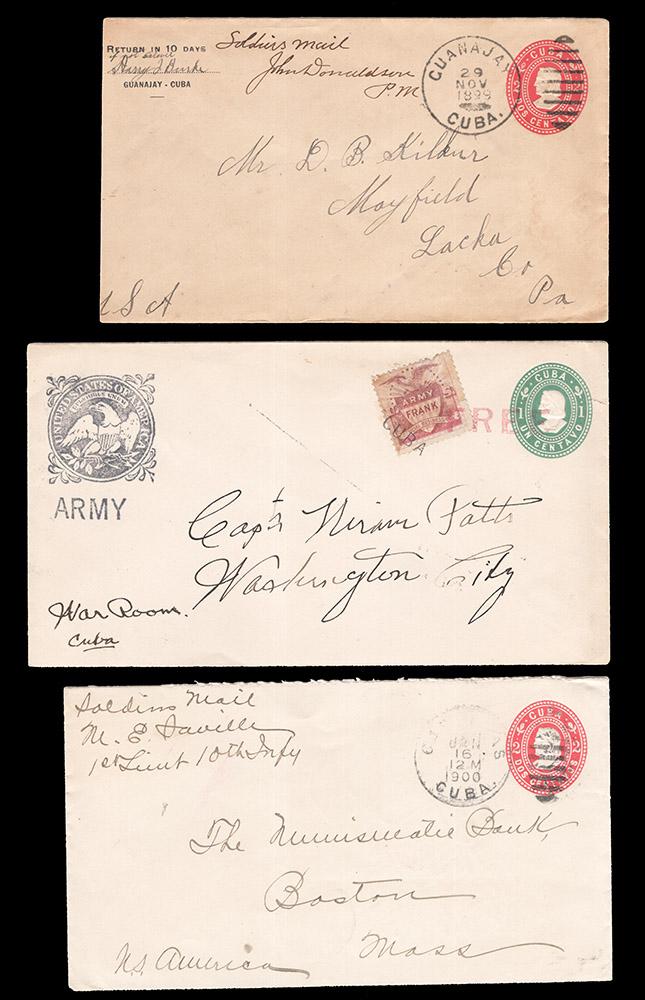 RETURN IN 10 DAYS
if not delivd
Harry J. Burke
GUANAJAY - CUBA
Soldiers mail
John Donaldson
P.M
GUANAJAY
29
NOV
1899
CUBA.
CUBA
2 2
DOS CENTAVOS
Mr. D. B. Kilbur
Mayfield
Lacka
Co
Pa
U S A
UNITED STATES OF AMERICA
ARMY
ARMY
FRANK
CUBA
FREE
CUBA
1 1
UN CENTAVO
Cap't Hiram Potts
Washington City
War Room.
Cuba
Soldiers Mail
M. E. Saville
1st Lieut 10th Infy
JAN
16
12 M
1900
CUBA.
CUBA
2 2
DOS CENTAVOS
The Numismatic Bank,
Boston
Mass
U.S. America